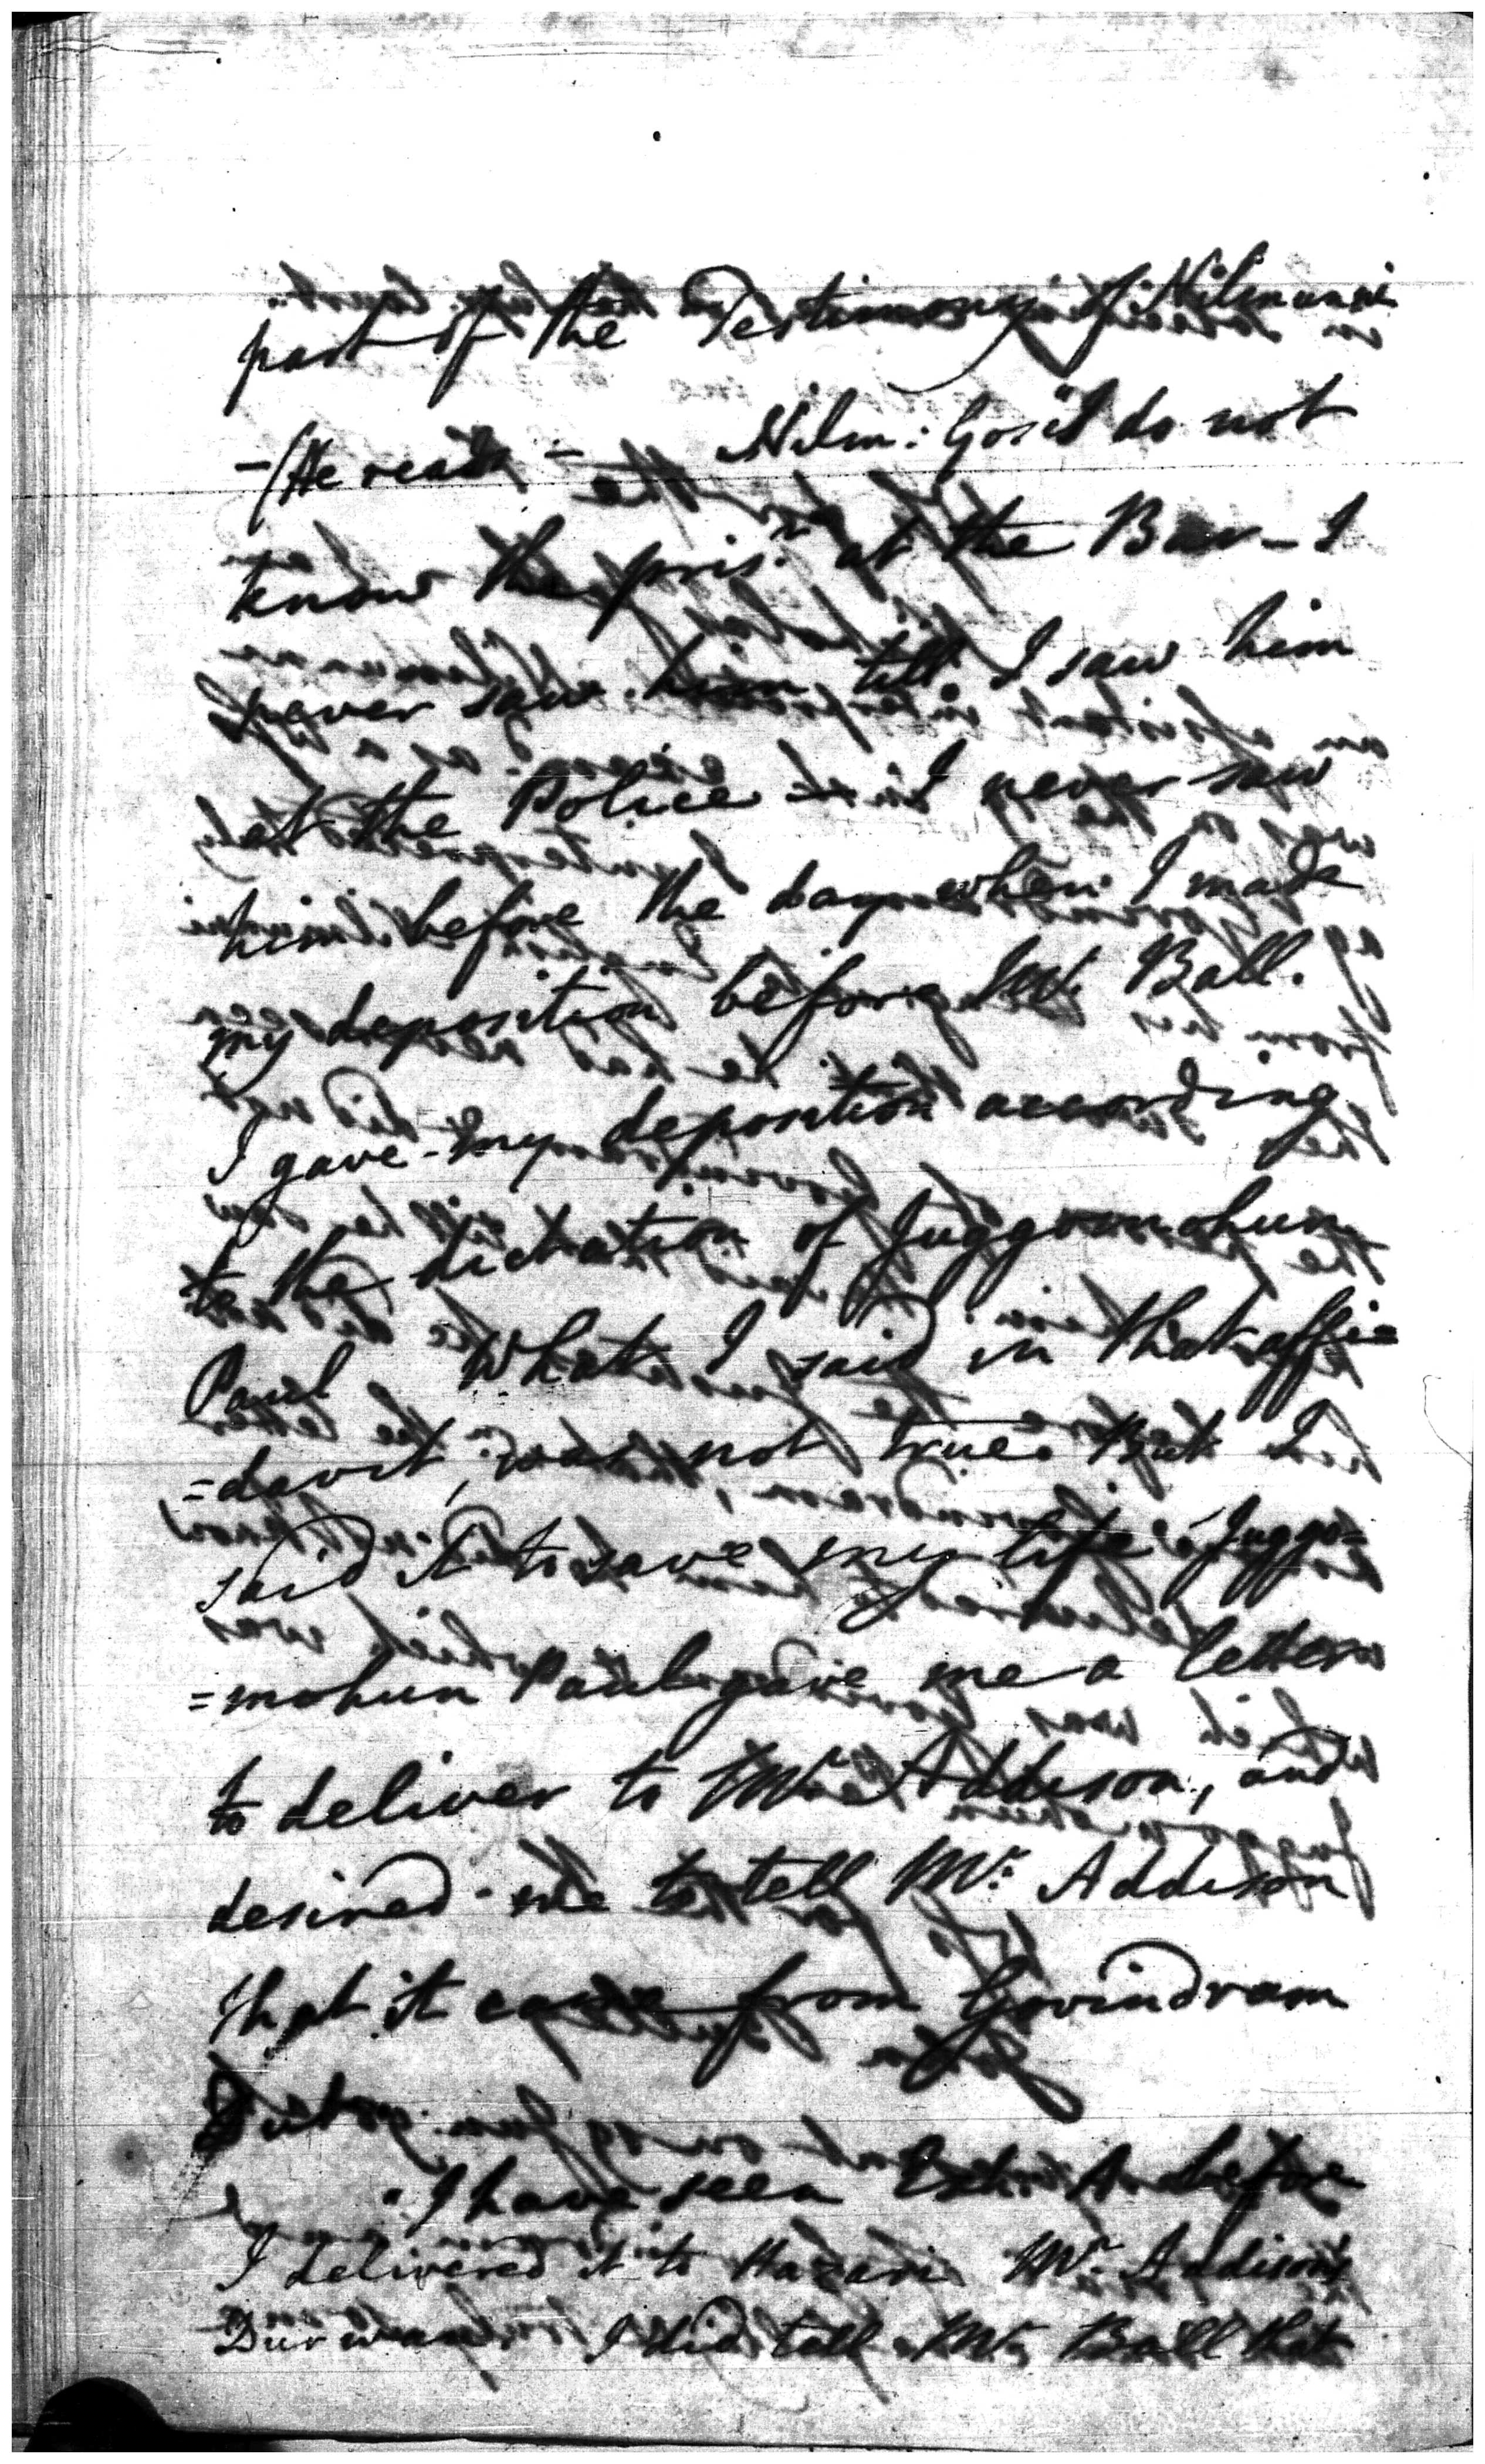 part of the Testimony of Nilmunie
-(He reads - Nilm: Gose I do not
know the pris.r at the Bar - I
never saw him till I saw him
at the Police - I never saw
him before the day when I made
my deposition before Mr. Ball.
I gave my deposition according
to the dictation of Juggomohun
Paul What I said in that affi=
=davit, was not true. But I
said it to save my life Juggo=
=mohun Paul gave me a letter
to deliver to Mr. Addison, and
desired me to tell Mr. Addison
that it came from Govindram

I have seen Exht. A before
I delivered it to Hazari Mr. Addison's
Durwan I did tell Mr. Ball that